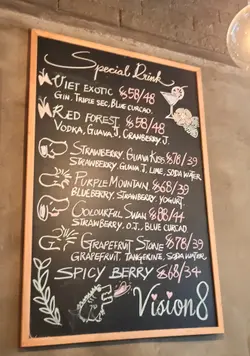 Special Drink
VIET EXOTIC $58/48
GIN. TRIPLE SEC, BLUE CURCAO.
RED FOREST $58/48
VODKA, GUAVA J. CRANBERRY J.
STRAWBERRY GUAVA KISS $78/39
STRAWBERRY, GUAVA J, LIME, SODA WATER
PURPLE MOUNTAIN $68/39
BLUEBERRY. STRAWBERRY. YOGURT.
COLOURFUL SWAN $88/44
STRAWBERRY, O.J., BLUE CURCAO
GRAPEFRUIT STONE $78/39
GRAPEFRUIT. TANGERINE, SODA WATER
SPICY BERRY $68/34
Vision8